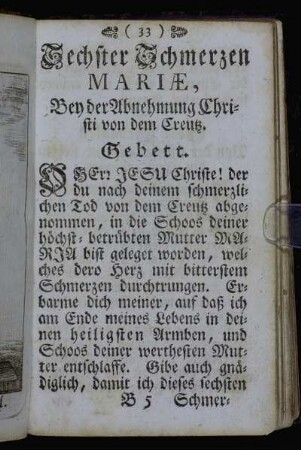 ( 33 )
Sechster Schmerzen
MARIÆ,
Bey der Abnehmung Chri-
sti von dem Creutz.
Gebett.
O HErr JESU Christe! der
du nach deinem schmerzli-
chen Tod von dem Creutz abge-
nommen, in die Schoos deiner
höchst-betrübten Mutter MA-
RJA bist geleget worden, wel-
ches dero Herz mit bitterstem
Schmerzen durchtrungen. Er-
barme dich meiner, auf daß ich
am Ende meines Lebens in dei-
nen heiligsten Armben, und
Schoos deiner werthesten Mut-
ter entschlaffe. Gibe auch gnä-
diglich, damit ich dieses sechsten
B 5 Schmer-